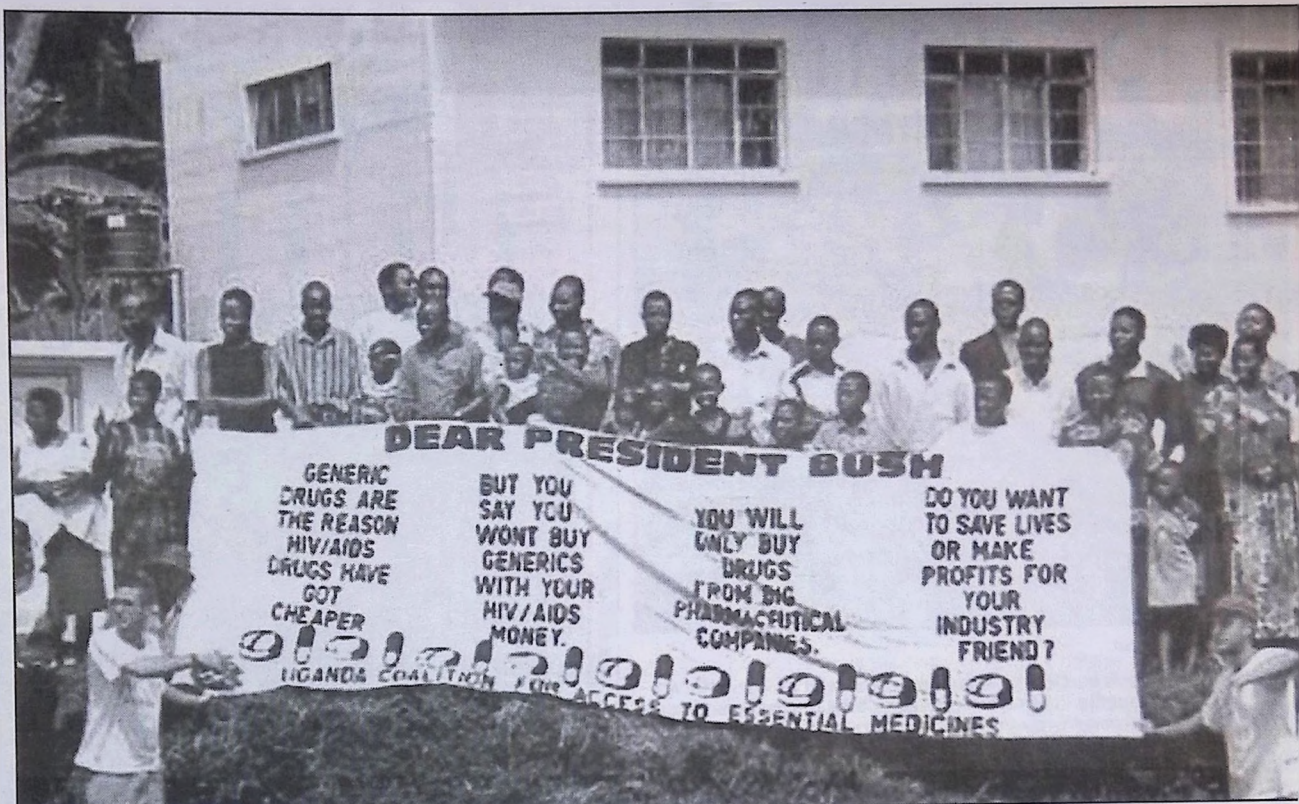 DEAR PRESIDENT BUSH
GENERIC
DRUGS ARE
THE REASON
HIV/AIDS
DRUGS HAVE
GOT
CHEAPER
BUT YOU
SAY YOU
WONT BUY
GENERICS
WITH YOUR
HIV/AIDS
MONEY.
YOU WILL
ONLY BUY
DRUGS
FROM BIG
PHARMACEUTICAL
COMPANIES.
DO YOU WANT
TO SAVE LIVES
OR MAKE
PROFITS FOR
YOUR
INDUSTRY
FRIEND?
UGANDA COALITION FOR ACCESS TO ESSENTIAL MEDICINES